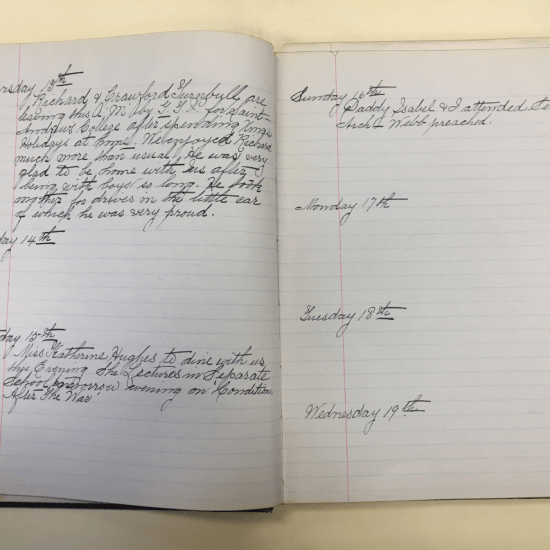 ursday 13th
Richard & Crawford Turnbull are
leaving this A.M. by G.T.R. for Saint
Andrews College after spending Xmas
Holidays at home. We enjoyed Richard
much more than usual. He was very
glad to be home with us after
being with boys so long. He took
mother for drives in the little car
of which he was very proud.
day 14th
day 15th
Miss Katherine Hughes to dine with us
this Evening. She Lectures in Separate
School tomorrow evening on "Condition
After The War"
Sunday 16th
Daddy Isabel & I attended
Arch Webb preached.
Monday 17th
Tuesday 18th
Wednesday 19th